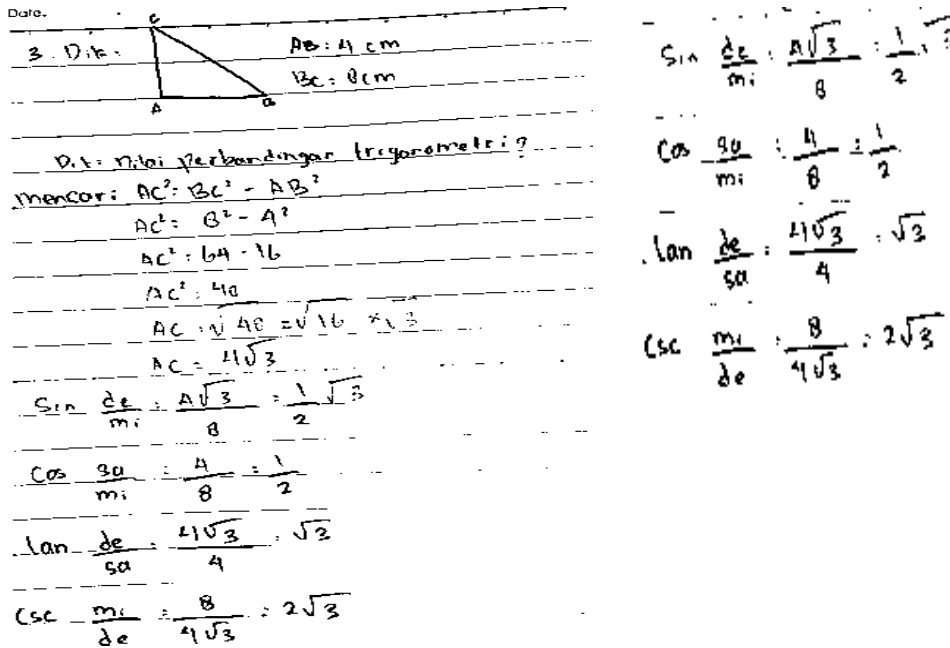 Date.
3. Dik :
C
A
B
AB : 4 cm
BC : 8 cm
Dit : nilai perbandingan trigonometri ?
mencari AC² : BC² - AB²
AC² : 8² - 4²
AC² : 64 - 16
AC² : 48
AC : √48 = √16 × √3
AC = 4√3
Sin de/mi : 4√3/8 : 1/2 √3
Cos sa/mi : 4/8 : 1/2
tan de/sa : 4√3/4 : √3
Csc mi/de : 8/4√3 : 2√3
Sin de/mi : 4√3/8 : 1/2 √3
Cos sa/mi : 4/8 : 1/2
tan de/sa : 4√3/4 : √3
Csc mi/de : 8/4√3 : 2√3